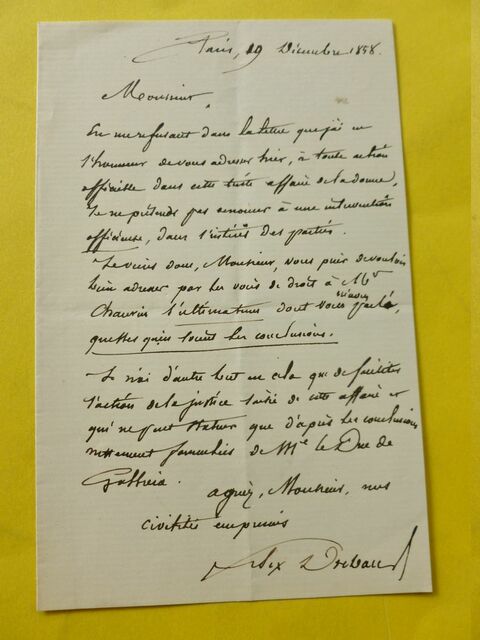 Paris, 19 Décembre 1858.
Monsieur,
En me refusant dans la lettre que j'ai eu
l'honneur de vous adresser hier, à toute action
officielle dans cette triste affaire de la
je ne prétends pas renoncer à une intervention
officieuse, dans l'intérêt des parties.
Je viens donc, Monsieur, vous prier de vouloir
bien adresser par les voies de droit à Mr
Chauvin l'ultimatum dont vous m'avez parlé,
quelles qu'en soient les conclusions.
Je n'ai d'autre but en cela que de faciliter
l'action de la justice saisie de cette affaire et
qui ne peut statuer que d'après les conclusions
nettement formulées de Mr le Duc de
agréez, Monsieur, mes
civilités empressées